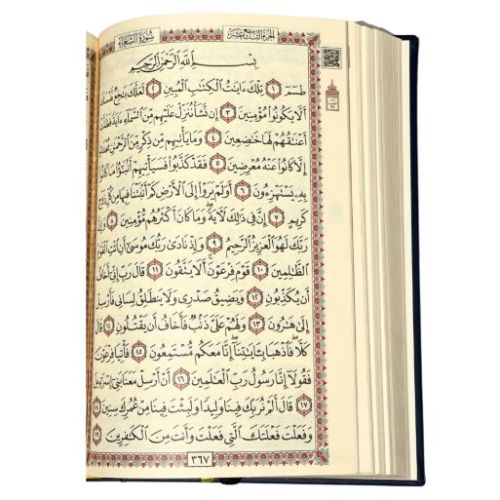 سورة الشعراء
الجزء التاسع عشر
بسم الله الرحمن الرحيم
طسم ١ تلك ءايت الكتب المبين ٢ لعلك بخع نفسك
ألا يكونوا مؤمنين ٣ إن نشأ ننزل عليهم من السماء ءاية فظلت
أعنقهم لها خضعين ٤ وما يأتيهم من ذكر من الرحمن محدث
إلا كانوا عنه معرضين ٥ فقد كذبوا فسيأتيهم أنبؤا ما كانوا
به يستهزءون ٦ أولم يروا إلى الأرض كم أنبتنا فيها من كل زوج
كريم ٧ إن في ذلك لءاية وما كان أكثرهم مؤمنين ٨ وإن
ربك لهو العزيز الرحيم ٩ وإذ نادى ربك موسى أن ائت القوم
الظلمين ١٠ قوم فرعون ألا يتقون ١١ قال رب إني أخاف
أن يكذبون ١٢ ويضيق صدري ولا ينطلق لساني فأرسل
إلى هرون ١٣ ولهم علي ذنب فأخاف أن يقتلون ١٤ قال
كلا فاذهبا بءايتنا إنا معكم مستمعون ١٥ فأتيا فرعون
فقولا إنا رسول رب العلمين ١٦ أن أرسل معنا بني إسرءيل
١٧ قال ألم نربك فينا وليدا ولبثت فينا من عمرك سنين ١٨
وفعلت فعلتك التي فعلت وأنت من الكفرين ١٩
٣٦٧